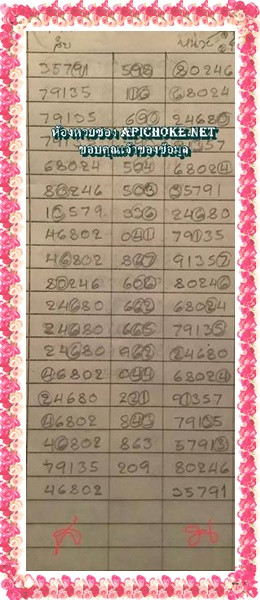 35791 598 80246
79135 116 68024
79135 690 24680
ห้องหวยซอง APICHOKE.NET
ขอบคุณเจ้าของข้อมูล
68024 504 68024
80246 503 35791
15579 336 24680
46802 041 79135
46802 847 91357
80246 606 80246
24680 662 68024
24680 665 79135
24680 962 24680
46802 044 68024
24680 221 91357
46802 843 79135
46802 863 57913
79135 209 80246
46802 35791